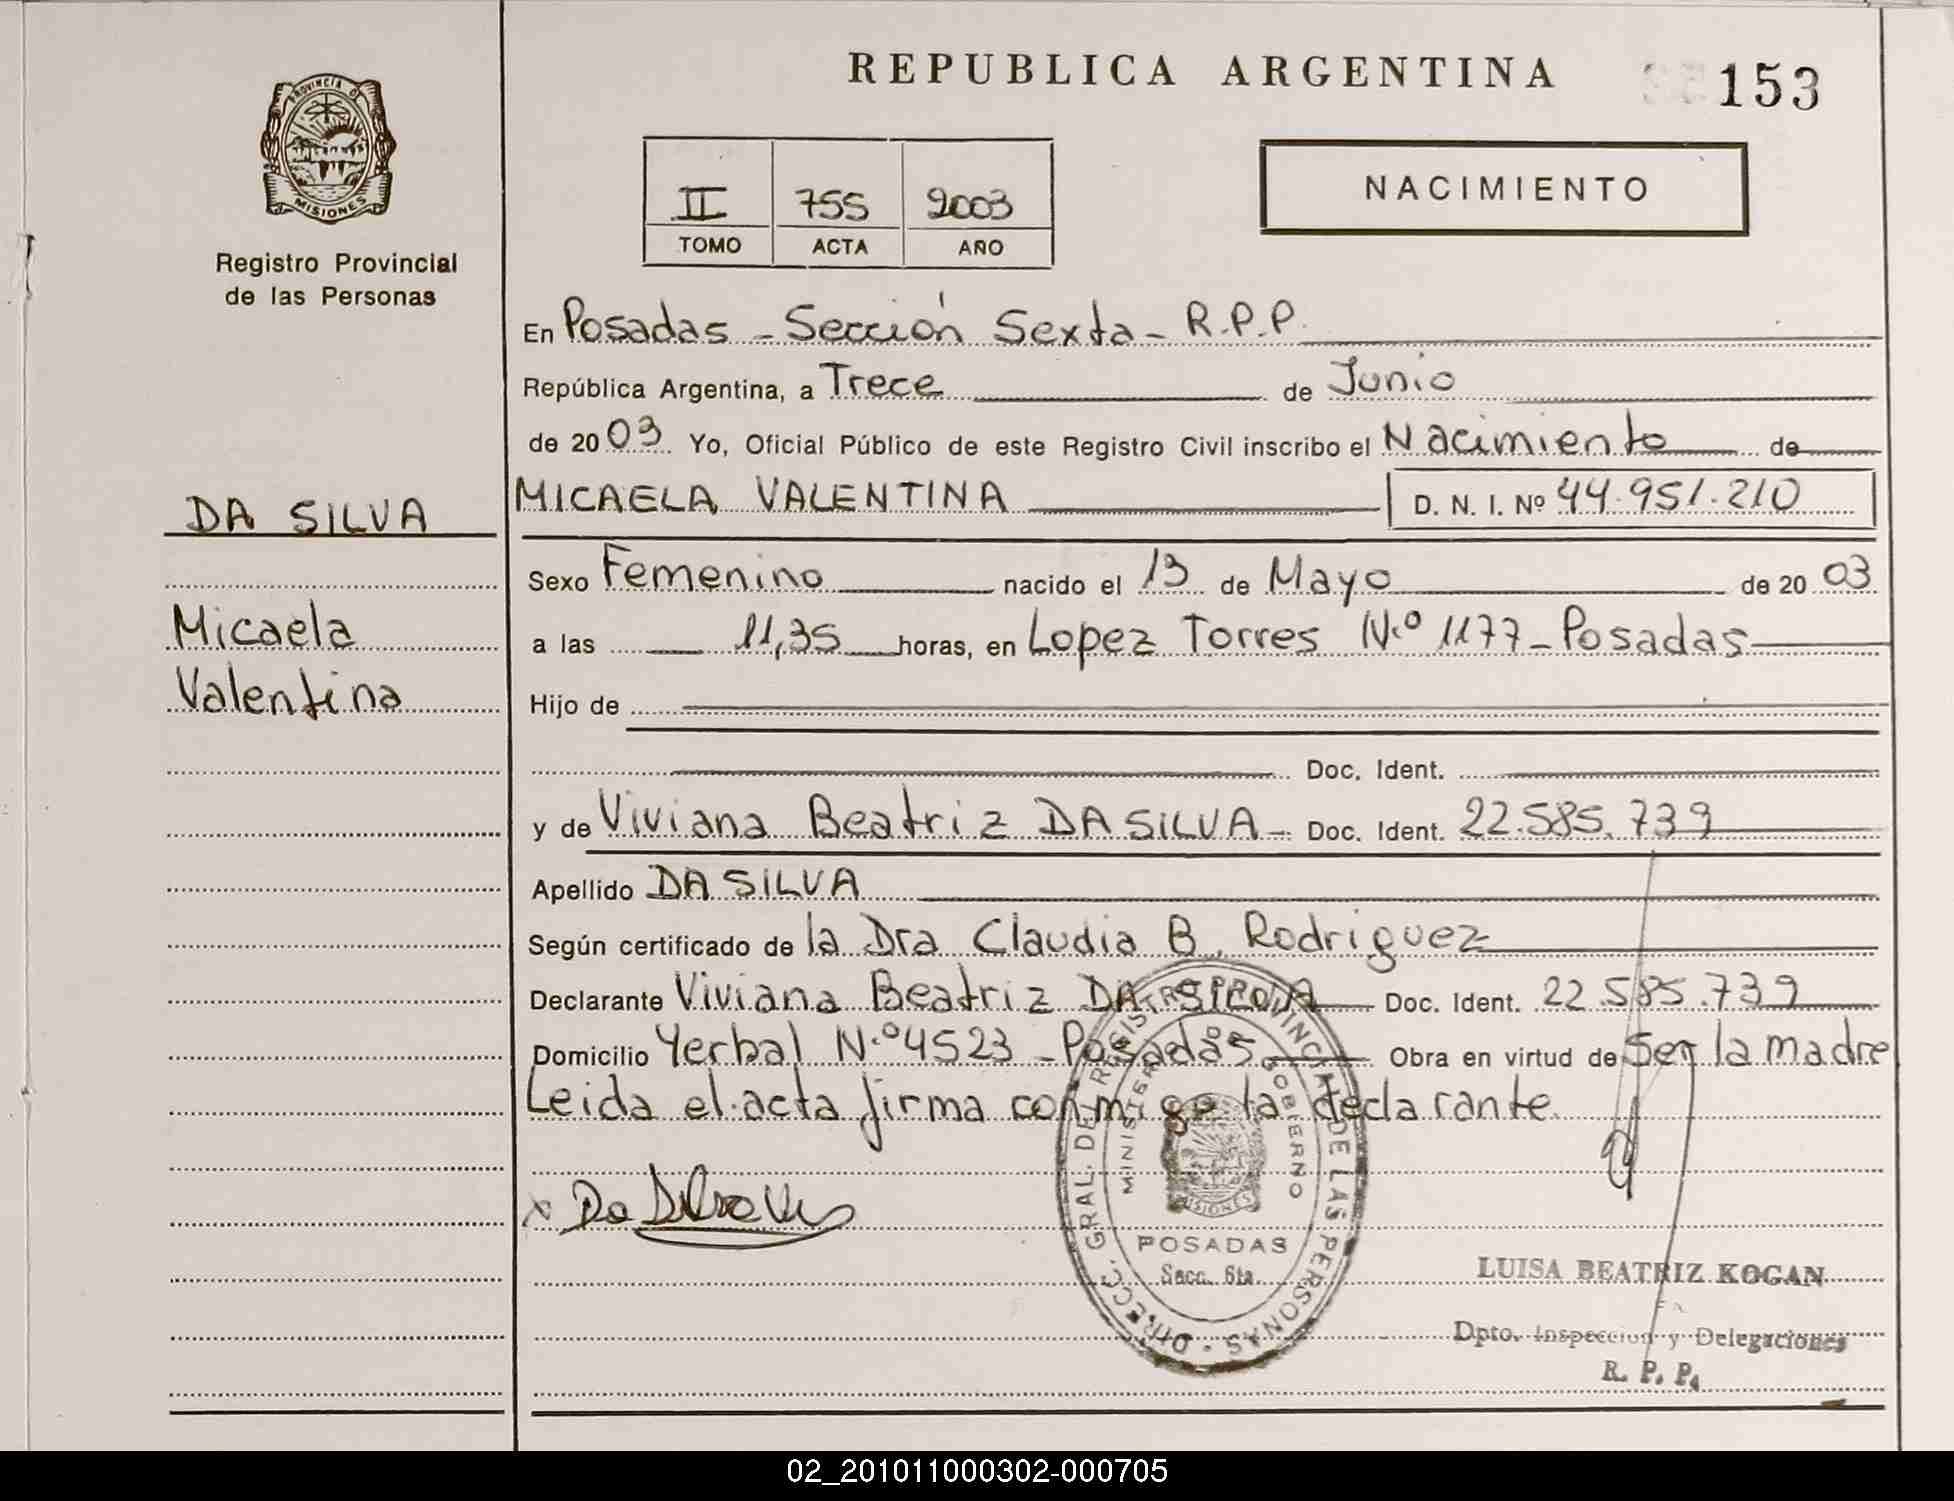 REPUBLICA ARGENTINA
153
PROVINCIA DE
MISIONES
Registro Provincial
de las Personas
II 755 2003
TOMO ACTA AÑO
NACIMIENTO
En Posadas - Sección Sexta - R.P.P.
República Argentina, a Trece de Junio
de 2003 Yo, Oficial Público de este Registro Civil inscribo el Nacimiento de
DA SILVA
MICAELA VALENTINA D. N. I. Nº 44.951.210
Sexo Femenino nacido el 13 de Mayo de 2003
Micaela
Valentina
a las 11,35 horas, en Lopez Torres N.º 1177 - Posadas
Hijo de
Doc. Ident.
y de Viviana Beatriz DA SILVA - Doc. Ident. 22.585.739
Apellido DA SILVA
Según certificado de la Dra Claudia B. Rodriguez
Declarante Viviana Beatriz DA SILVA Doc. Ident. 22.585.739
Domicilio Yerbal N.º 4523 - Posadas Obra en virtud de Ser la madre
Leida el acta firma conmigo la declarante
x Da Silva
DIRECC. GRAL. DE REGISTRO PROVINCIAL DE LAS PERSONAS
MINISTERIO DE GOBIERNO
MISIONES
POSADAS
Secc. 6ta.
LUISA BEATRIZ KOGAN
Dpto. Inspeccion y Delegaciones
R. P. P.
02_201011000302-000705